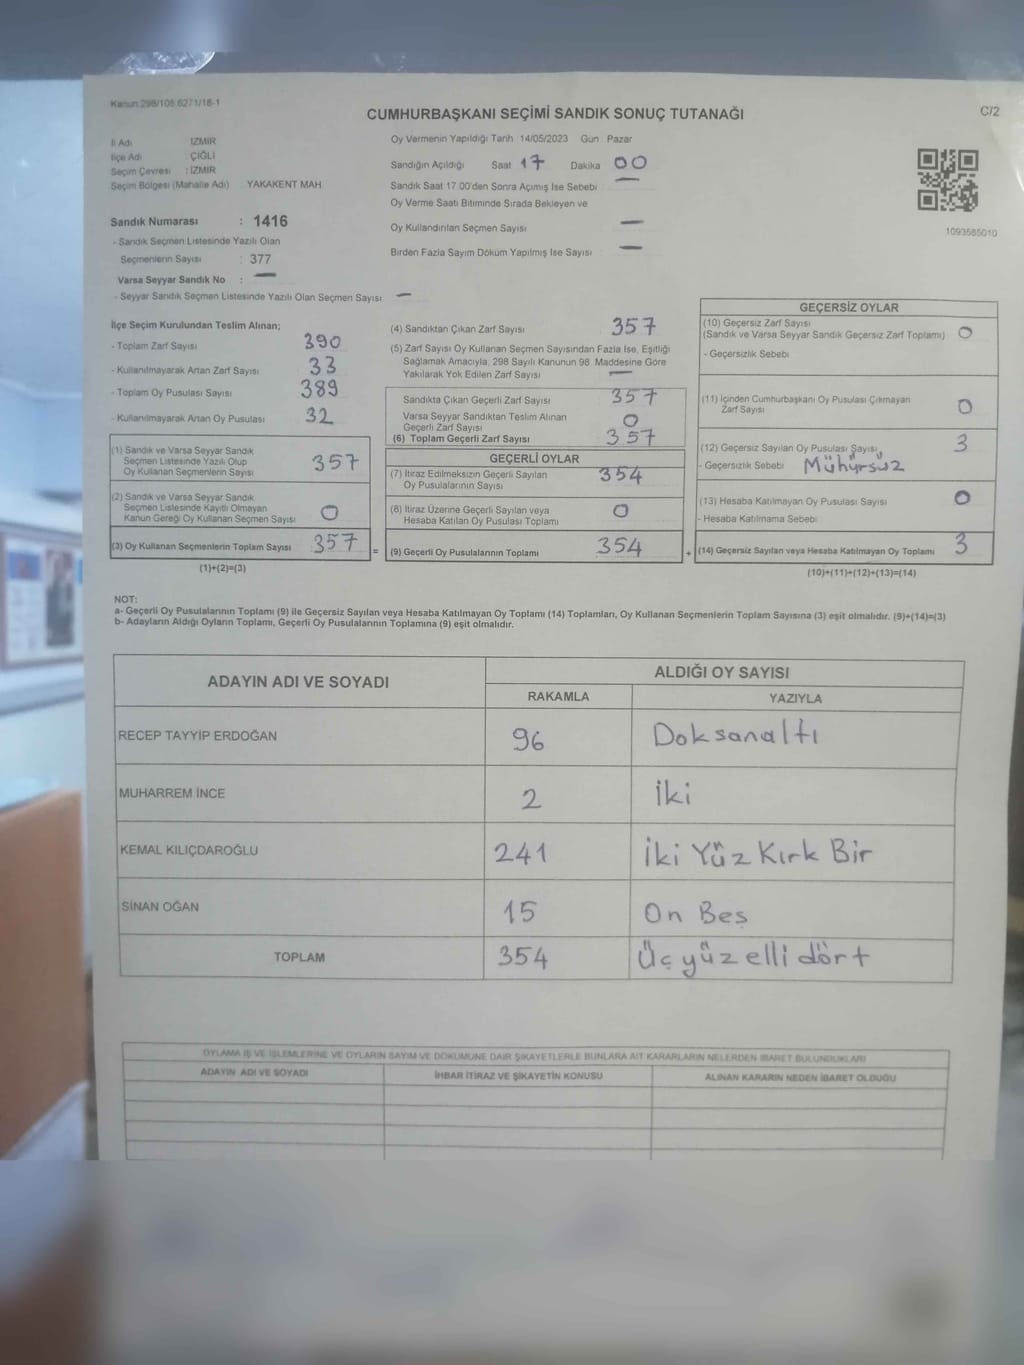 Kanun:298/105,6271/18-1
CUMHURBAŞKANI SEÇİMİ SANDIK SONUÇ TUTANAĞI
C/2
İl Adı İZMİR
İlçe Adı ÇİĞLİ
Seçim Çevresi : İZMİR
Seçim Bölgesi (Mahalle Adı) YAKAKENT MAH
Sandık Numarası : 1416
- Sandık Seçmen Listesinde Yazılı Olan
Seçmenlerin Sayısı : 377
Varsa Seyyar Sandık No : —
- Seyyar Sandık Seçmen Listesinde Yazılı Olan Seçmen Sayısı —
Oy Vermenin Yapıldığı Tarih 14/05/2023 Gün Pazar
Sandığın Açıldığı Saat 17 Dakika 00
Sandık Saat 17:00'den Sonra Açımış İse Sebebi —
Oy Verme Saati Bitiminde Sırada Bekleyen ve
Oy Kullandırılan Seçmen Sayısı —
Birden Fazla Sayım Döküm Yapılmış İse Sayısı —
1093585010
İlçe Seçim Kurulundan Teslim Alınan;
- Toplam Zarf Sayısı 390
- Kullanılmayarak Artan Zarf Sayısı 33
- Toplam Oy Pusulası Sayısı 389
- Kullanılmayarak Artan Oy Pusulası 32
(1) Sandık ve Varsa Seyyar Sandık
Seçmen Listesinde Yazılı Olup
Oy Kullanan Seçmenlerin Sayısı 357
(2) Sandık ve Varsa Seyyar Sandık
Seçmen Listesinde Kayıtlı Olmayan
Kanun Gereği Oy Kullanan Seçmen Sayısı 0
(3) Oy Kullanan Seçmenlerin Toplam Sayısı 357 =
(1)+(2)=(3)
(4) Sandıktan Çıkan Zarf Sayısı 357
(5) Zarf Sayısı Oy Kullanan Seçmen Sayısından Fazla İse, Eşitliği
Sağlamak Amacıyla, 298 Sayılı Kanunun 98. Maddesine Göre
Yakılarak Yok Edilen Zarf Sayısı —
Sandıkta Çıkan Geçerli Zarf Sayısı 357
Varsa Seyyar Sandıktan Teslim Alınan
Geçerli Zarf Sayısı 0
(6) Toplam Geçerli Zarf Sayısı 357
GEÇERLİ OYLAR
(7) İtiraz Edilmeksizin Geçerli Sayılan
Oy Pusulalarının Sayısı 354
(8) İtiraz Üzerine Geçerli Sayılan veya
Hesaba Katılan Oy Pusulası Toplamı 0
(9) Geçerli Oy Pusulalarının Toplamı 354 +
GEÇERSİZ OYLAR
(10) Geçersiz Zarf Sayısı
(Sandık ve Varsa Seyyar Sandık Geçersiz Zarf Toplamı) 0
- Geçersizlik Sebebi
(11) İçinden Cumhurbaşkanı Oy Pusulası Çıkmayan
Zarf Sayısı 0
(12) Geçersiz Sayılan Oy Pusulası Sayısı 3
- Geçersizlik Sebebi Mühürsüz
(13) Hesaba Katılmayan Oy Pusulası Sayısı 0
- Hesaba Katılmama Sebebi
(14) Geçersiz Sayılan veya Hesaba Katılmayan Oy Toplamı 3
(10)+(11)+(12)+(13)=(14)
NOT:
a- Geçerli Oy Pusulalarının Toplamı (9) ile Geçersiz Sayılan veya Hesaba Katılmayan Oy Toplamı (14) Toplamları, Oy Kullanan Seçmenlerin Toplam Sayısına (3) eşit olmalıdır. (9)+(14)=(3)
b- Adayların Aldığı Oyların Toplamı, Geçerli Oy Pusulalarının Toplamına (9) eşit olmalıdır.
ADAYIN ADI VE SOYADI ALDIĞI OY SAYISI
RAKAMLA YAZIYLA
RECEP TAYYİP ERDOĞAN 96 Doksanaltı
MUHARREM İNCE 2 İki
KEMAL KILIÇDAROĞLU 241 İki Yüz Kırk Bir
SİNAN OĞAN 15 On Beş
TOPLAM 354 Üçyüzellidört
OYLAMA İŞ VE İŞLEMLERİNE VE OYLARIN SAYIM VE DÖKÜMÜNE DAİR ŞİKAYETLERLE BUNLARA AİT KARARLARIN NELERDEN İBARET BULUNDUKLARI
ADAYIN ADI VE SOYADI İHBAR İTİRAZ VE ŞİKAYETİN KONUSU ALINAN KARARIN NEDEN İBARET OLDUĞU